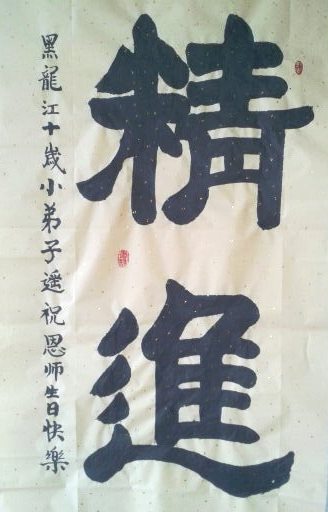 精進
黑龍江十歲小弟子遥祝恩师生日快樂